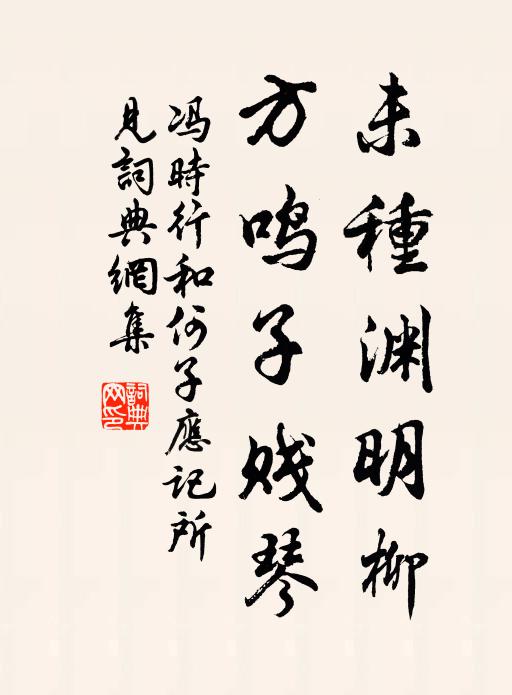 未種渊明柳
方鸣子賤琴
冯時行和何子應記所
見詞典網集
詞典
网印